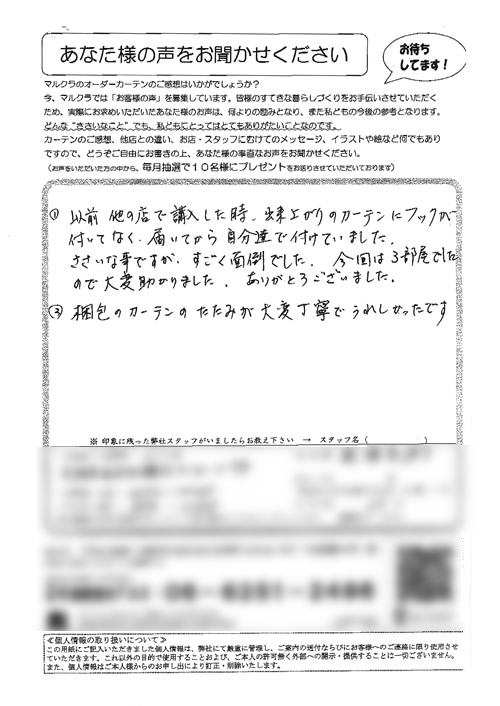 あなた様の声をお聞かせください
お待ち
してます！
マルクラのオーダーカーテンのご感想はいかがでしょうか？
今、マルクラでは「お客様の声」を募集しています。皆様のすてきな暮らしづくりをお手伝いさせていただく
ため、実際にお求めいただいたあなた様のお声は、何よりの励みとなり、また私どもの今後の参考となります。
どんな“ささいなこと”でも、私どもにとってはとてもありがたいことなのです。
カーテンのご感想、他店との違い、お店・スタッフにむけてのメッセージ、イラストや絵など何でもあり
ですので、どうぞご自由にお書きの上、あなた様の率直なお声をお聞かせください。
（お声をいただいた方の中から、毎月抽選で１０名様にプレゼントをお送りさせていただいております）
① 以前 他の店で購入した時、出来上がりのカーテンにフックが
付いてなく、届いてから自分達で付けていました。
ささいな事ですが、すごく面倒でした。 今回は3部屋でした
ので大変助かりました。 ありがとうございました。
② 梱包のカーテンのたたみが大変丁寧でうれしかったです
※ 印象に残った弊社スタッフがいましたらお教え下さい → スタッフ名（ ）
≪個人情報の取り扱いについて≫
この用紙にご記入いただきました個人情報は、弊社にて厳重に管理し、ご案内の送付ならびにお客様へのご連絡に限り使用させ
ていただきます。これ以外の目的で使用することおよび、ご本人の許可無く外部への開示・提供することは一切ございません。
また、個人情報はご本人様からのお申し出により訂正・削除いたします。